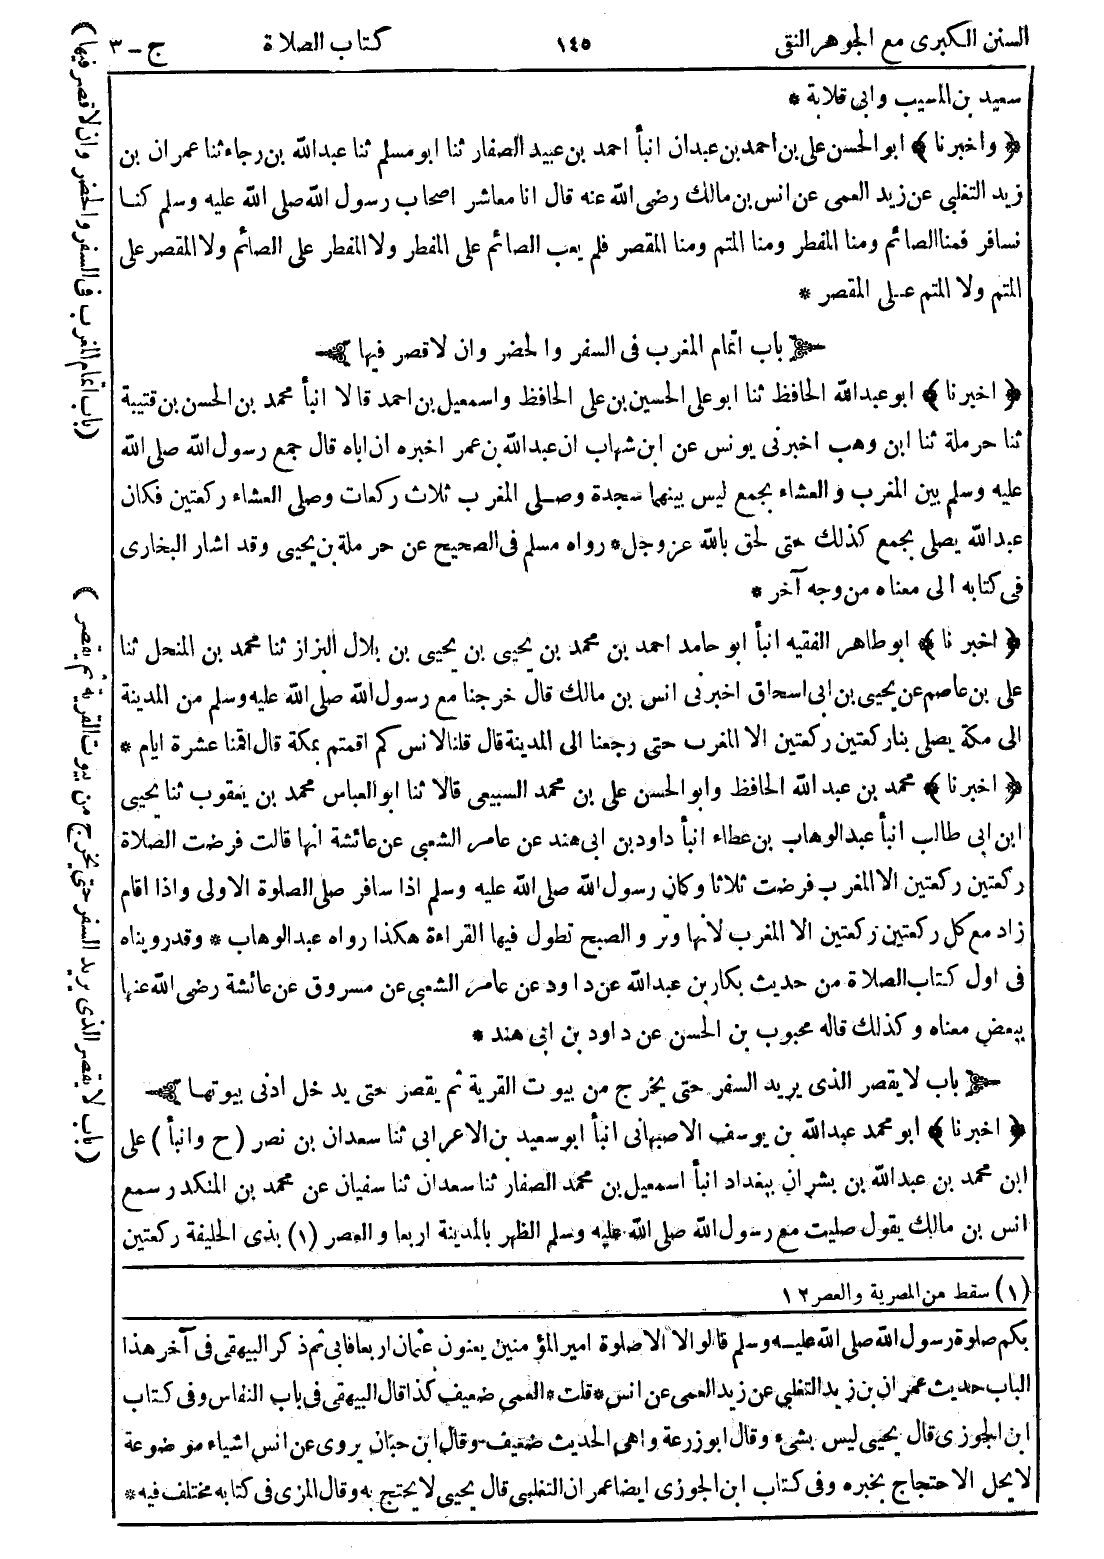 السنن الكبرى مع الجوهر النقى ١٤٥ كتاب الصلاة ج - ٣
سعيد بن المسيب وابى قلابة *
﴿ واخبرنا ﴾ ابو الحسن على بن احمد بن عبدان انبأ احمد بن عبيد الصفار ثنا ابو مسلم ثنا عبدالله بن رجاء ثنا عمران بن
زيد التغلبى عن زيد العمى عن انس بن مالك رضى الله عنه قال انا معاشر اصحاب رسول الله صلى الله عليه وسلم كنا
نسافر فمنا الصائم ومنا المفطر ومنا المتم ومنا المقصر فلم يعب الصائم على المفطر ولا المفطر على الصائم ولا المقصر على
المتم ولا المتم على المقصر *
باب اتمام المغرب فى السفر والحضر وان لا قصر فيها
﴿ اخبرنا ﴾ ابو عبدالله الحافظ ثنا ابو على الحسين بن على الحافظ واسمعيل بن احمد قالا انبأ محمد بن الحسن بن قتيبة
ثنا حرملة ثنا ابن وهب اخبرنى يونس عن ابن شهاب ان عبدالله بن عمر اخبره ان اباه قال جمع رسول الله صلى الله
عليه وسلم بين المغرب والعشاء بجمع ليس بينهما سجدة وصلى المغرب ثلاث ركعات وصلى العشاء ركعتين فكان
عبدالله يصلى بجمع كذلك حتى لحق بالله عزوجل * رواه مسلم فى الصحيح عن حرملة بن يحيى وقد اشار البخارى
فى كتابه الى معناه من وجه آخر *
﴿ اخبرنا ﴾ ابو طاهر الفقيه انبأ ابو حامد احمد بن محمد بن يحيى بن يحيى بن بلال البزاز ثنا محمد بن المنحل ثنا
على بن عاصم عن يحيى بن ابى اسحاق اخبرنى انس بن مالك قال خرجنا مع رسول الله صلى الله عليه وسلم من المدينة
الى مكة يصلى بنا ركعتين ركعتين الا المغرب حتى رجعنا الى المدينة قال قلنا لانس كم اقمتم بمكة قال اقمنا عشرة ايام *
﴿ اخبرنا ﴾ محمد بن عبد الله الحافظ وابو الحسن على بن محمد السبيعى قالا ثنا ابو العباس محمد بن يعقوب ثنا يحيى
ابن ابى طالب انبأ عبدالوهاب بن عطاء انبأ داود بن ابى هند عن عامر الشعبى عن عائشة انها قالت فرضت الصلاة
ركعتين ركعتين الا المغرب فرضت ثلاثا وكان رسول الله صلى الله عليه وسلم اذا سافر صلى الصلوة الاولى واذا اقام
زاد مع كل ركعتين ركعتين الا المغرب لانها وتر والصبح تطول فيها القراءة هكذا رواه عبدالوهاب * وقد رويناه
فى اول كتاب الصلاة من حديث بكار بن عبدالله عن داود عن عامر الشعبى عن مسروق عن عائشة رضى الله عنها
ببعض معناه وكذلك قاله محبوب بن الحسن عن داود بن ابى هند *
باب لا يقصر الذى يريد السفر حتى يخرج من بيوت القرية ثم يقصر حتى يدخل ادنى بيوتها
﴿ اخبرنا ﴾ ابو محمد عبدالله بن يوسف الاصبهانى انبأ ابو سعيد بن الاعرابى ثنا سعدان بن نصر ( ح وانبأ ) على
ابن محمد بن عبدالله بن بشران ببغداد انبأ اسمعيل بن محمد الصفار ثنا سعدان ثنا سفيان عن محمد بن المنكدر سمع
انس بن مالك يقول صليت مع رسول الله صلى الله عليه وسلم الظهر بالمدينة اربعا والعصر (١) بذى الحليفة ركعتين
(١) سقط من المصرية والعصر ١٢
بكم صلوة رسول الله صلى الله عليه وسلم قالوا لا الا صلوة امير المؤمنين يعنون عثمان اربعا فابى ثم ذكر البيهقى فى آخر هذا
الباب حديث عمران بن زيد التغلبى عن زيد العمى عن انس * قلت * العمى ضعيف كذا قال البيهقى فى باب النفاس وفى كتاب
ابن الجوزى قال يحيى ليس بشىء وقال ابو زرعة واهى الحديث ضعيف وقال ابن حبان يروى عن انس اشياء موضوعة
لا يحل الاحتجاج بخبره وفى كتاب ابن الجوزى ايضا عمران التغلبى قال يحيى لا يحتج به وقال المزى فى كتابه مختلف فيه *
(باب اتمام المغرب فى السفر والحضر وان لا قصر فيها)
(باب لا يقصر الذى يريد السفر حتى يخرج من بيوت القرية ثم يقصر)